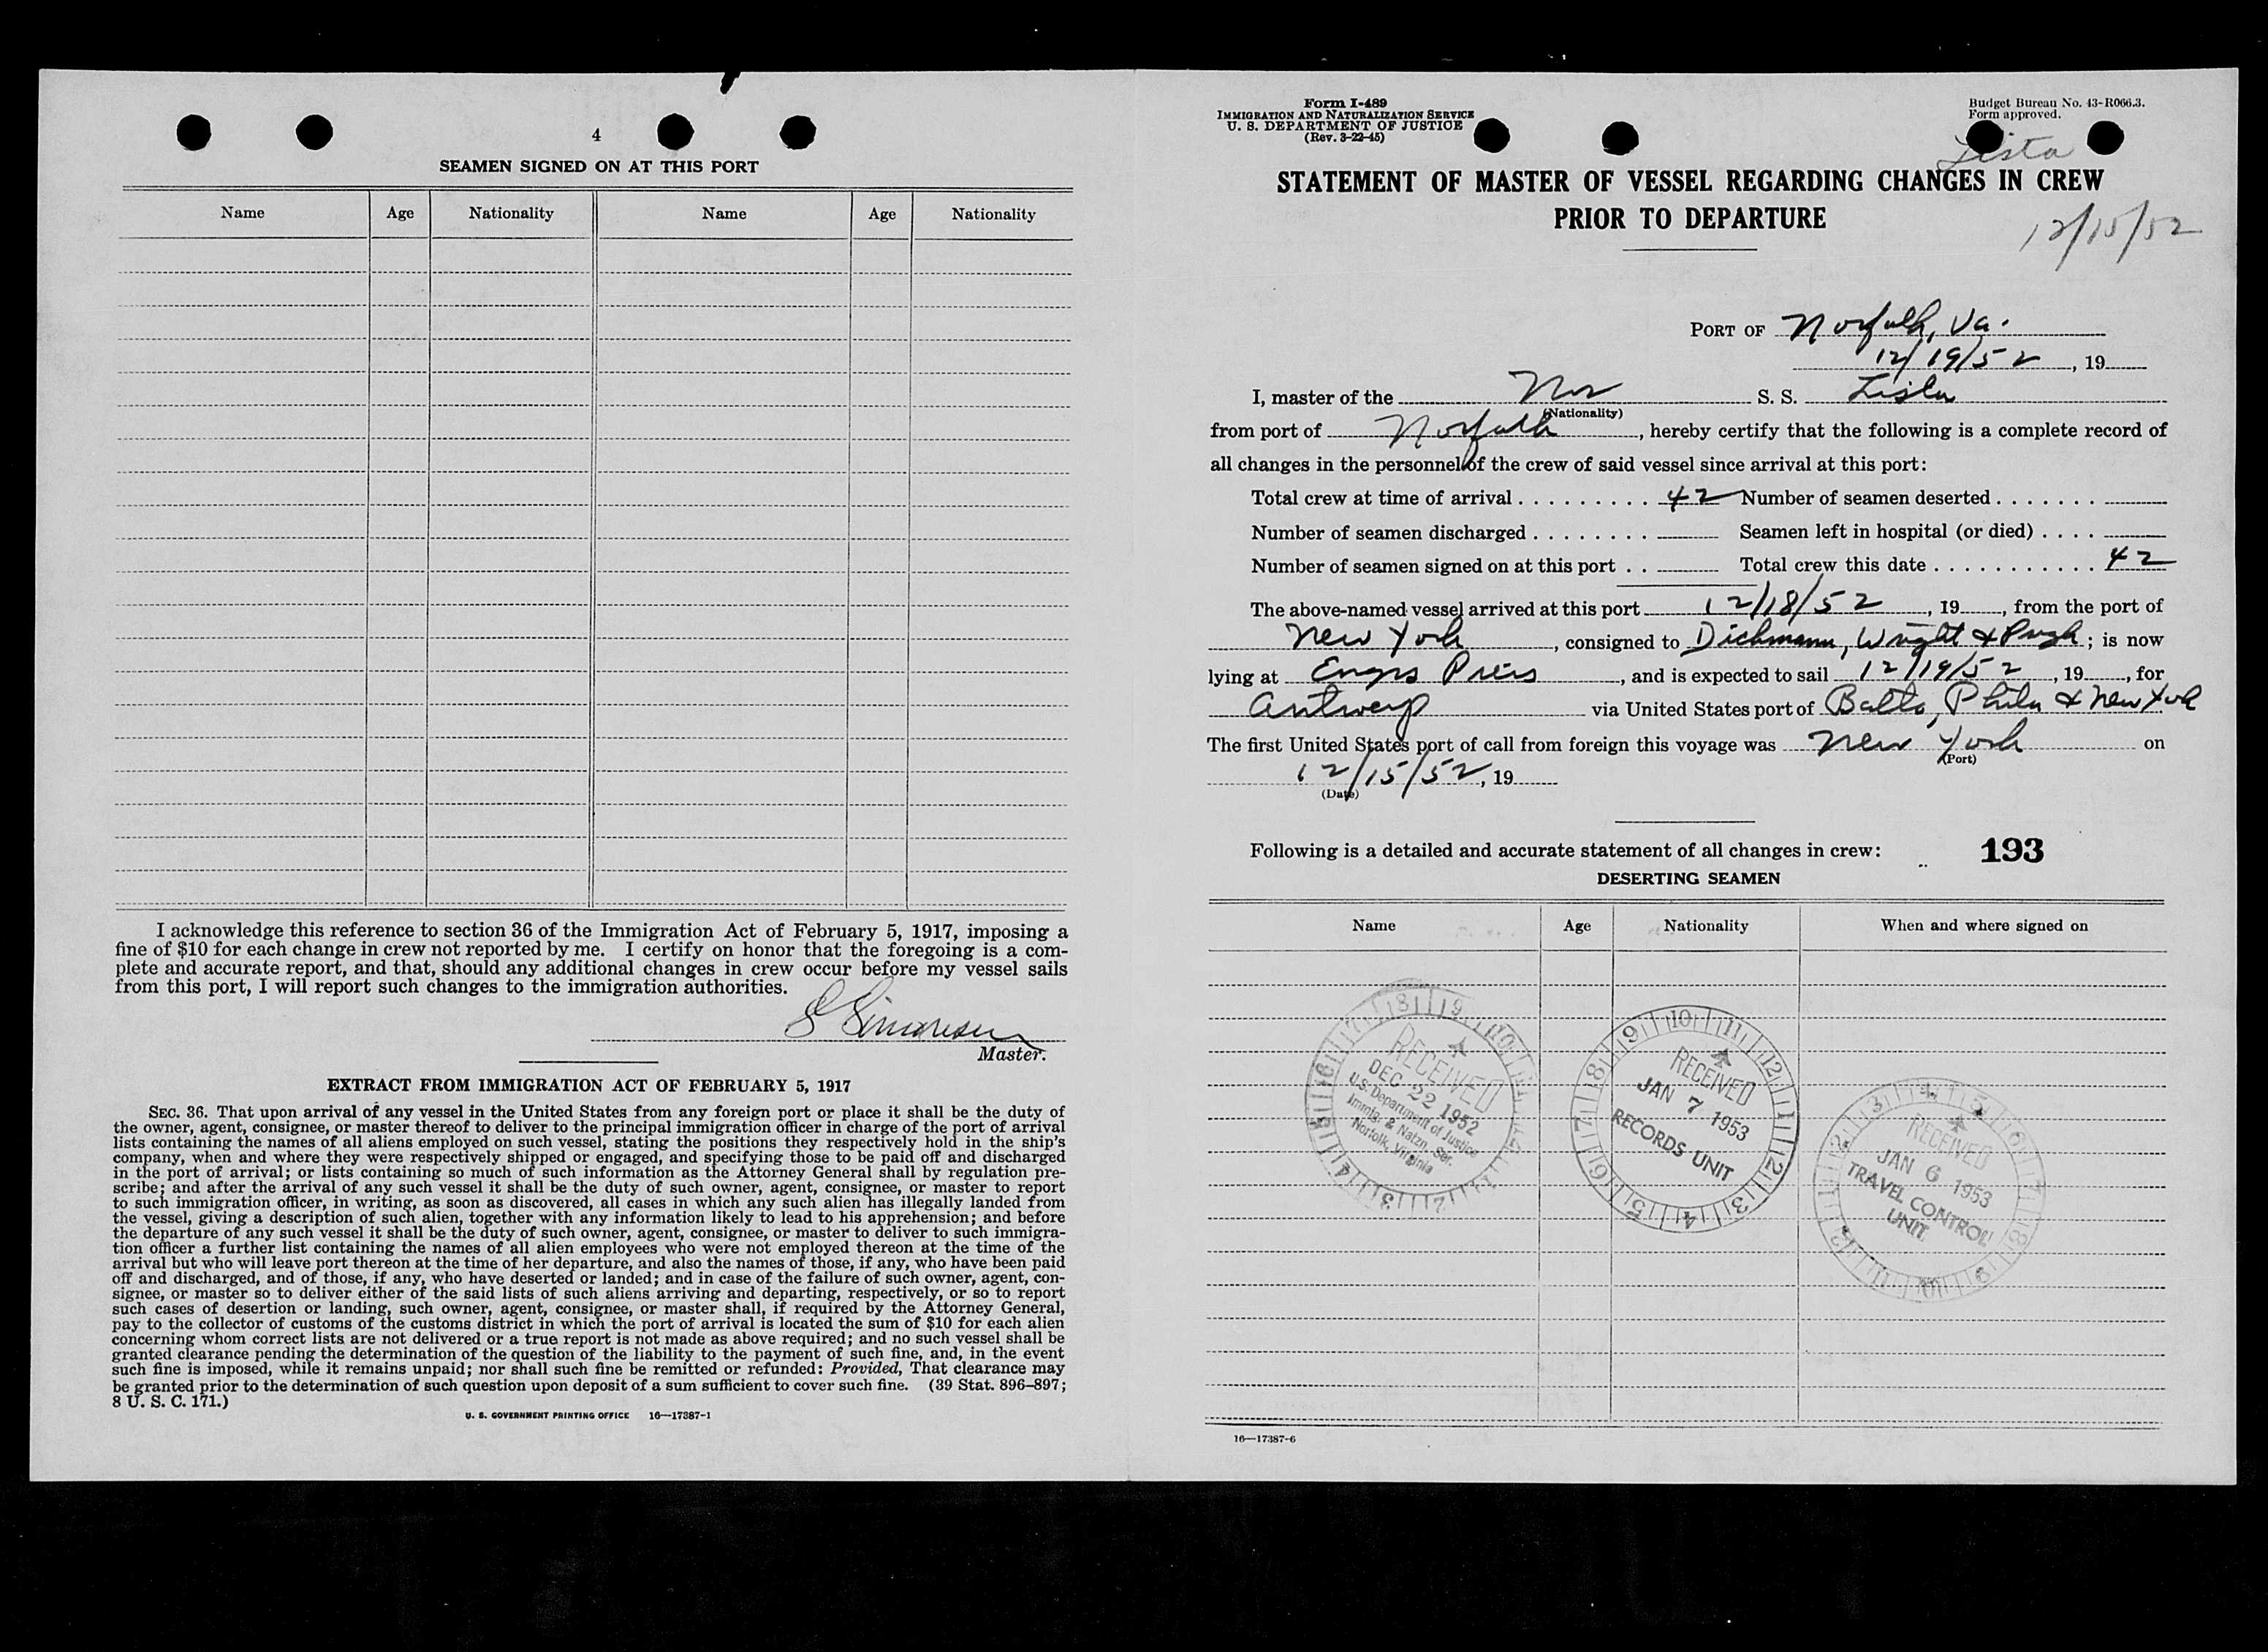 4
SEAMEN SIGNED ON AT THIS PORT
Name Age Nationality Name Age Nationality
I acknowledge this reference to section 36 of the Immigration Act of February 5, 1917, imposing a
fine of $10 for each change in crew not reported by me. I certify on honor that the foregoing is a com-
plete and accurate report, and that, should any additional changes in crew occur before my vessel sails
from this port, I will report such changes to the immigration authorities.
Master.
EXTRACT FROM IMMIGRATION ACT OF FEBRUARY 5, 1917
SEC. 36. That upon arrival of any vessel in the United States from any foreign port or place it shall be the duty of
the owner, agent, consignee, or master thereof to deliver to the principal immigration officer in charge of the port of arrival
lists containing the names of all aliens employed on such vessel, stating the positions they respectively hold in the ship's
company, when and where they were respectively shipped or engaged, and specifying those to be paid off and discharged
in the port of arrival; or lists containing so much of such information as the Attorney General shall by regulation pre-
scribe; and after the arrival of any such vessel it shall be the duty of such owner, agent, consignee, or master to report
to such immigration officer, in writing, as soon as discovered, all cases in which any such alien has illegally landed from
the vessel, giving a description of such alien, together with any information likely to lead to his apprehension; and before
the departure of any such vessel it shall be the duty of such owner, agent, consignee, or master to deliver to such immigra-
tion officer a further list containing the names of all alien employees who were not employed thereon at the time of the
arrival but who will leave port thereon at the time of her departure, and also the names of those, if any, who have been paid
off and discharged, and of those, if any, who have deserted or landed; and in case of the failure of such owner, agent, con-
signee, or master so to deliver either of the said lists of such aliens arriving and departing, respectively, or so to report
such cases of desertion or landing, such owner, agent, consignee, or master shall, if required by the Attorney General,
pay to the collector of customs of the customs district in which the port of arrival is located the sum of $10 for each alien
concerning whom correct lists are not delivered or a true report is not made as above required; and no such vessel shall be
granted clearance pending the determination of the question of the liability to the payment of such fine, and, in the event
such fine is imposed, while it remains unpaid; nor shall such fine be remitted or refunded: Provided, That clearance may
be granted prior to the determination of such question upon deposit of a sum sufficient to cover such fine. (39 Stat. 896–897;
8 U. S. C. 171.)
U. S. GOVERNMENT PRINTING OFFICE 16—17387-1
Form I-489
IMMIGRATION AND NATURALIZATION SERVICE
U. S. DEPARTMENT OF JUSTICE
(Rev. 3-22-45)
Budget Bureau No. 43-R066.3.
Form approved.
Lista
STATEMENT OF MASTER OF VESSEL REGARDING CHANGES IN CREW
PRIOR TO DEPARTURE
12/15/52
PORT OF Norfolk, Va.
12/19/52, 19
I, master of the Nor S. S. Lista
(Nationality)
from port of Norfolk, hereby certify that the following is a complete record of
all changes in the personnel of the crew of said vessel since arrival at this port:
Total crew at time of arrival . . . . . . . . . 42 Number of seamen deserted . . . . . . .
Number of seamen discharged . . . . . . . . Seamen left in hospital (or died) . . . .
Number of seamen signed on at this port . . Total crew this date . . . . . . . . . . . 42
The above-named vessel arrived at this port 12/18/52, 19, from the port of
New York, consigned to Dichmann, Wright & Pugh; is now
lying at Engrs Piers, and is expected to sail 12/19/52, 19, for
Antwerp via United States port of Balto, Phila & New York
The first United States port of call from foreign this voyage was New York on
(Port)
12/15/52, 19
(Date)
Following is a detailed and accurate statement of all changes in crew: 193
DESERTING SEAMEN
Name Age Nationality When and where signed on
RECEIVED
DEC 22 1952
U.S. Department of Justice
Immig. & Natzn. Ser.
Norfolk, Virginia
RECEIVED
JAN 7 1953
RECORDS UNIT
RECEIVED
JAN 6 1953
TRAVEL CONTROL
UNIT
16—17387-6